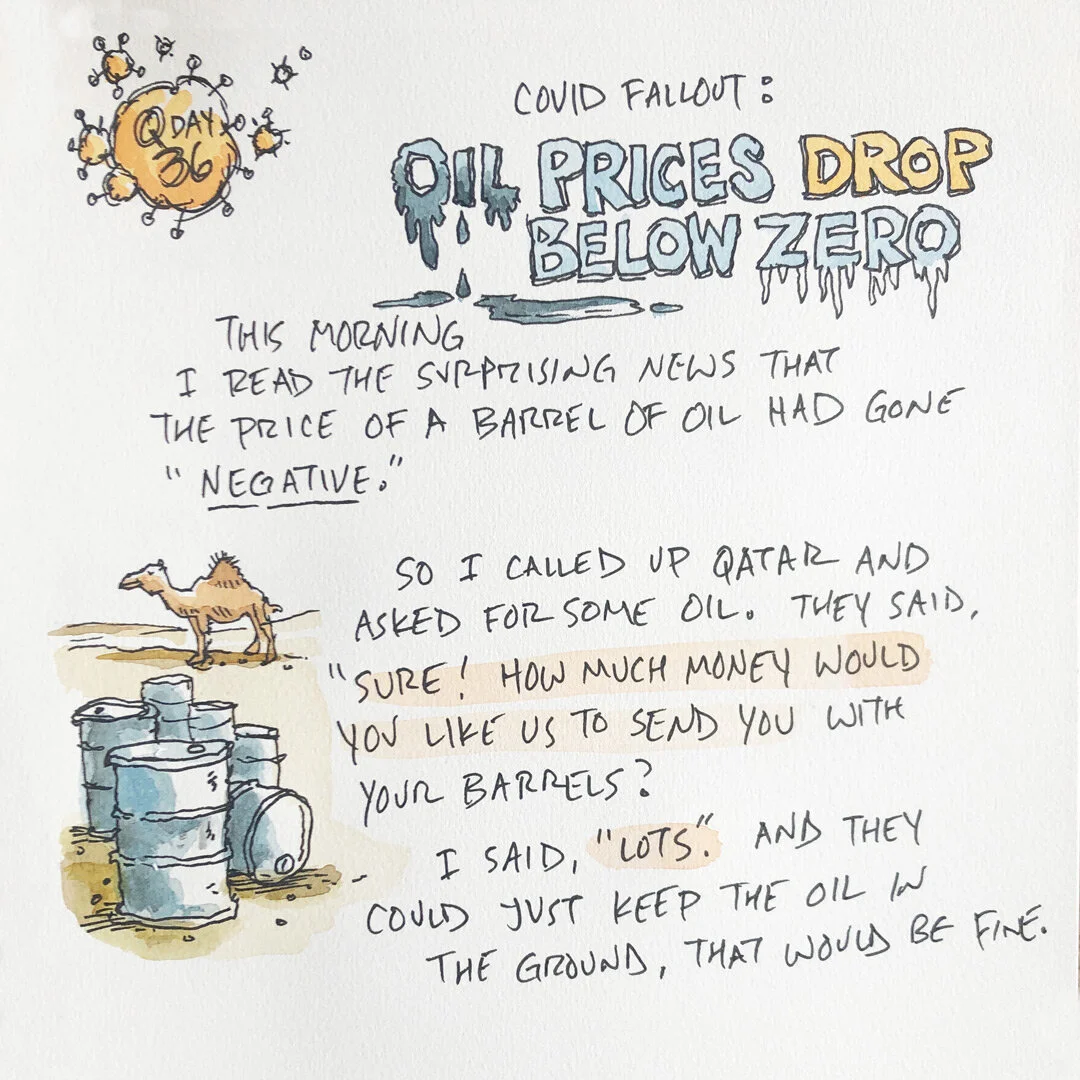 Q DAY
36
COVID FALLOUT:
OIL PRICES DROP
BELOW ZERO
THIS MORNING
I READ THE SURPRISING NEWS THAT
THE PRICE OF A BARREL OF OIL HAD GONE
"NEGATIVE."
SO I CALLED UP QATAR AND
ASKED FOR SOME OIL. THEY SAID,
"SURE! HOW MUCH MONEY WOULD
YOU LIKE US TO SEND YOU WITH
YOUR BARRELS?
I SAID, "LOTS". AND THEY
COULD JUST KEEP THE OIL IN
THE GROUND, THAT WOULD BE FINE.